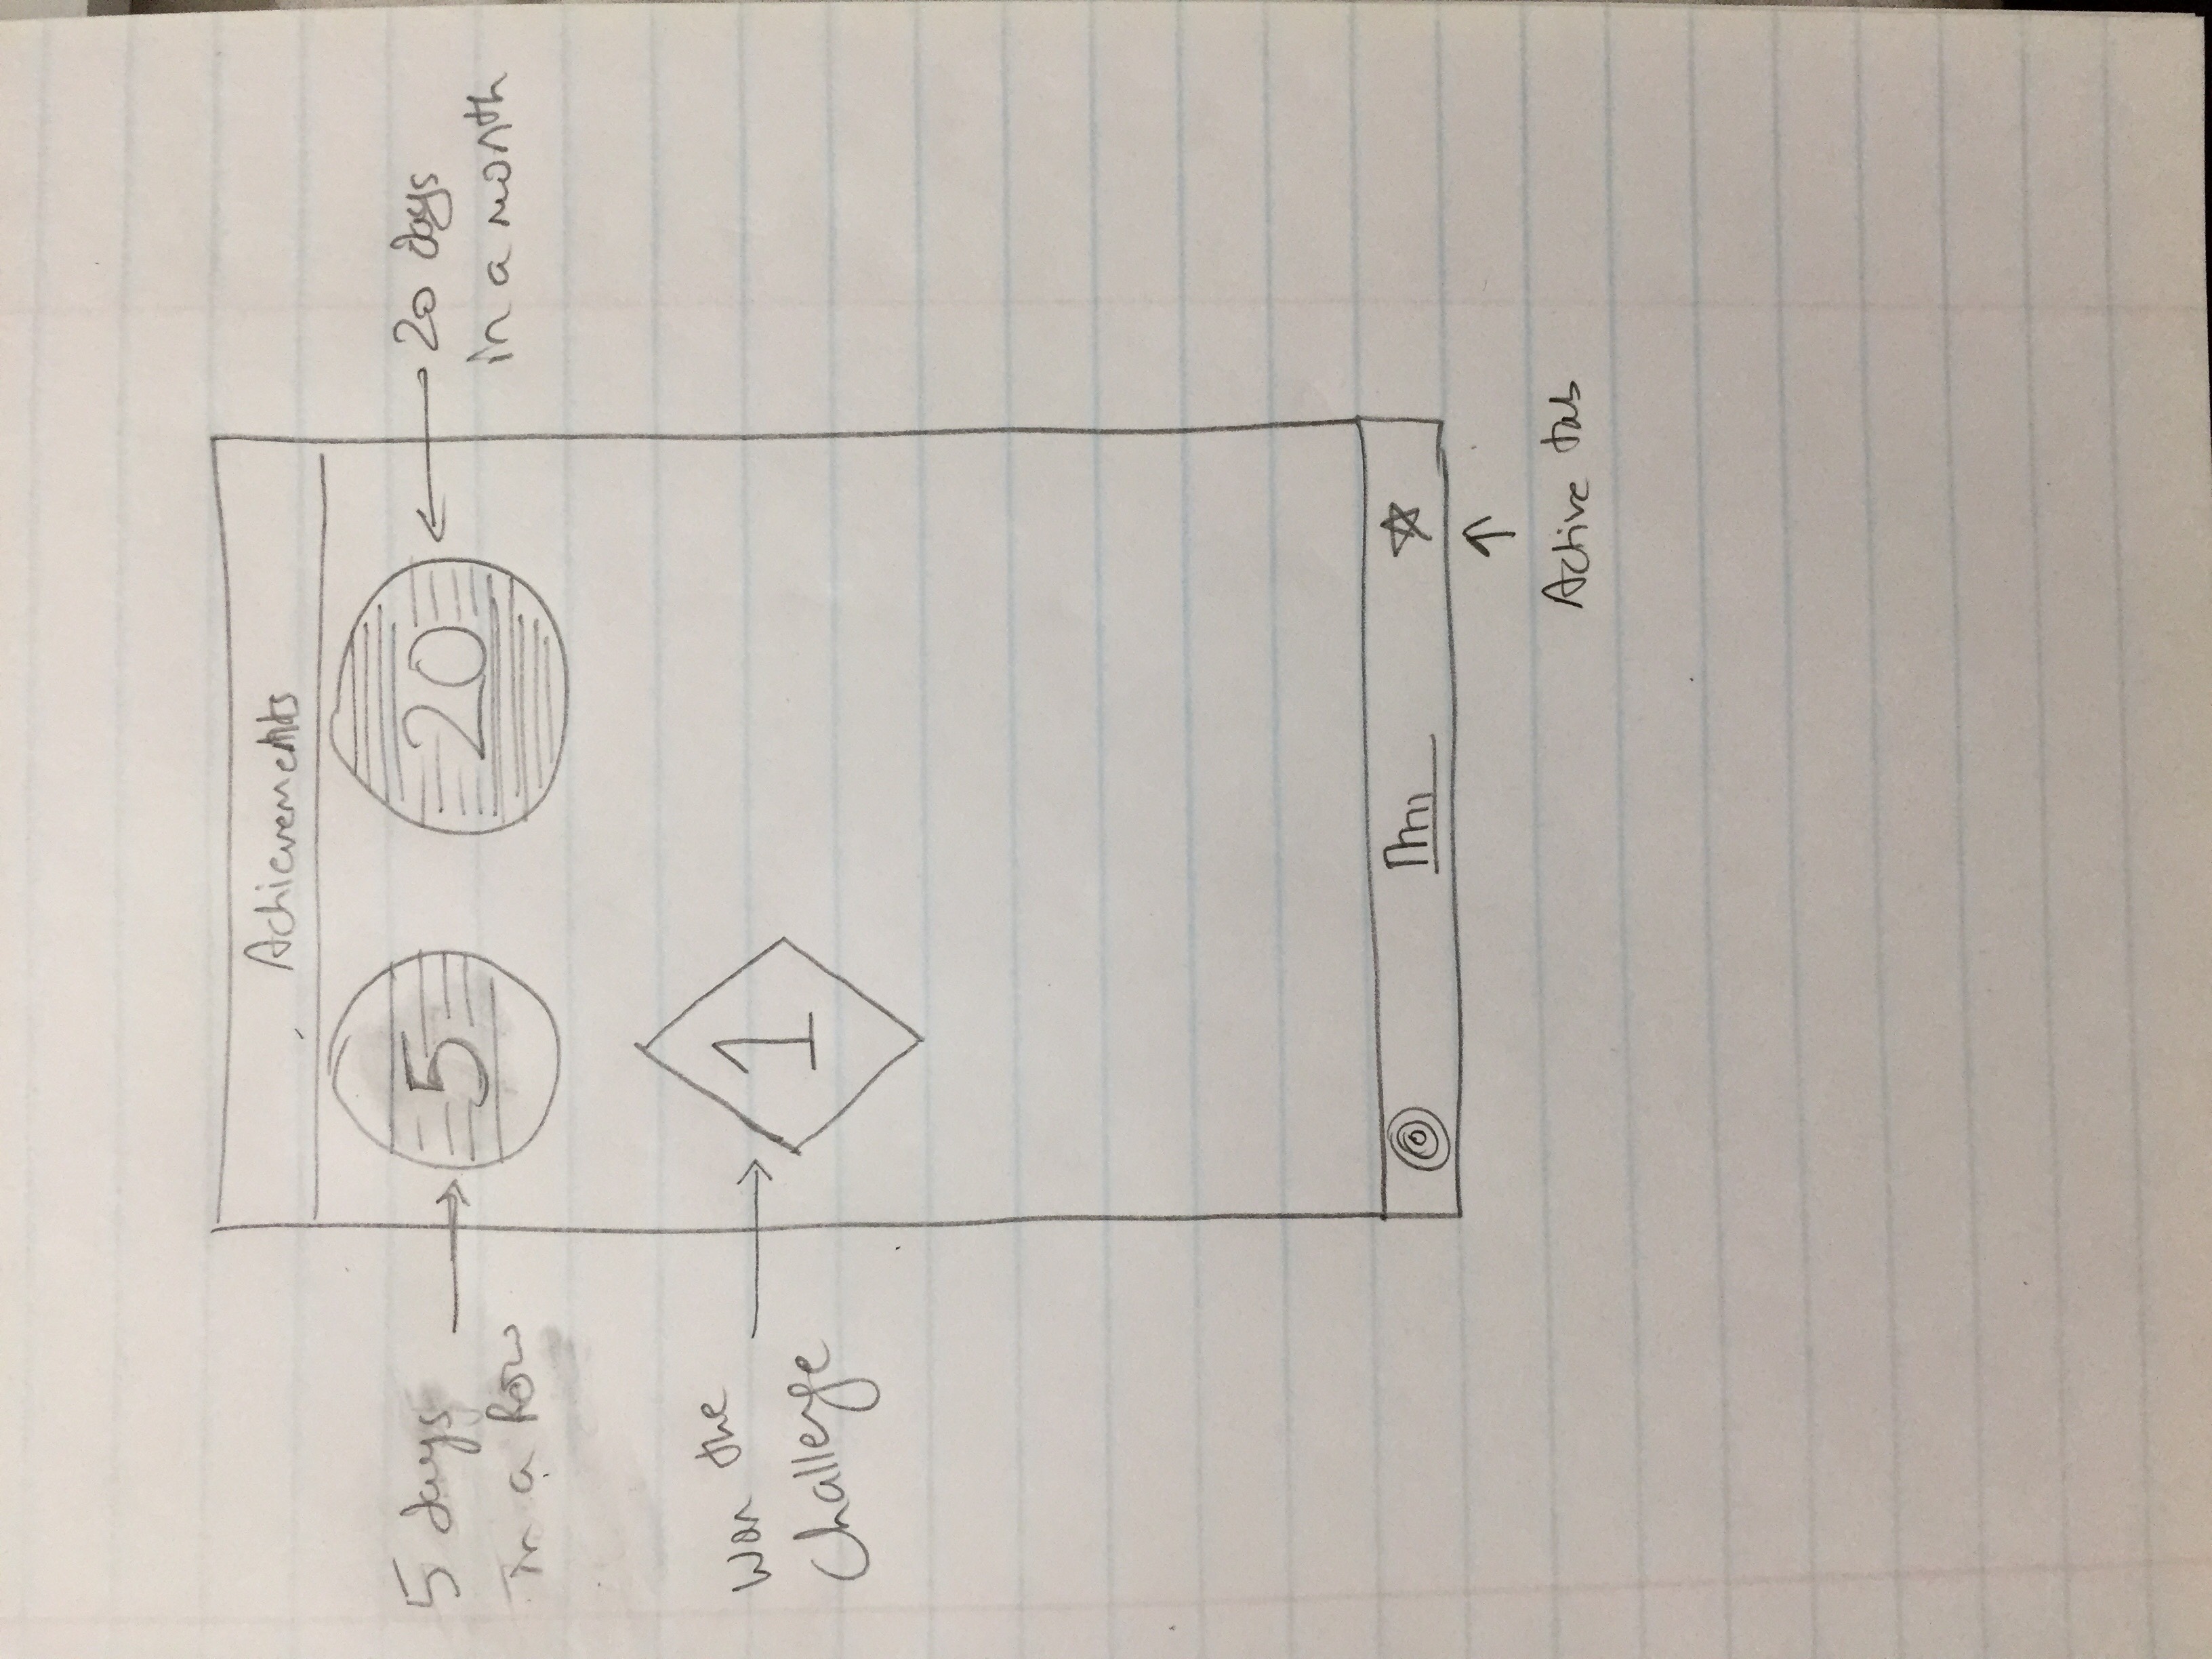 Achievements
5 days
in a Row
5
20
20 days
in a month
Won the
Challenge
1
Active tab